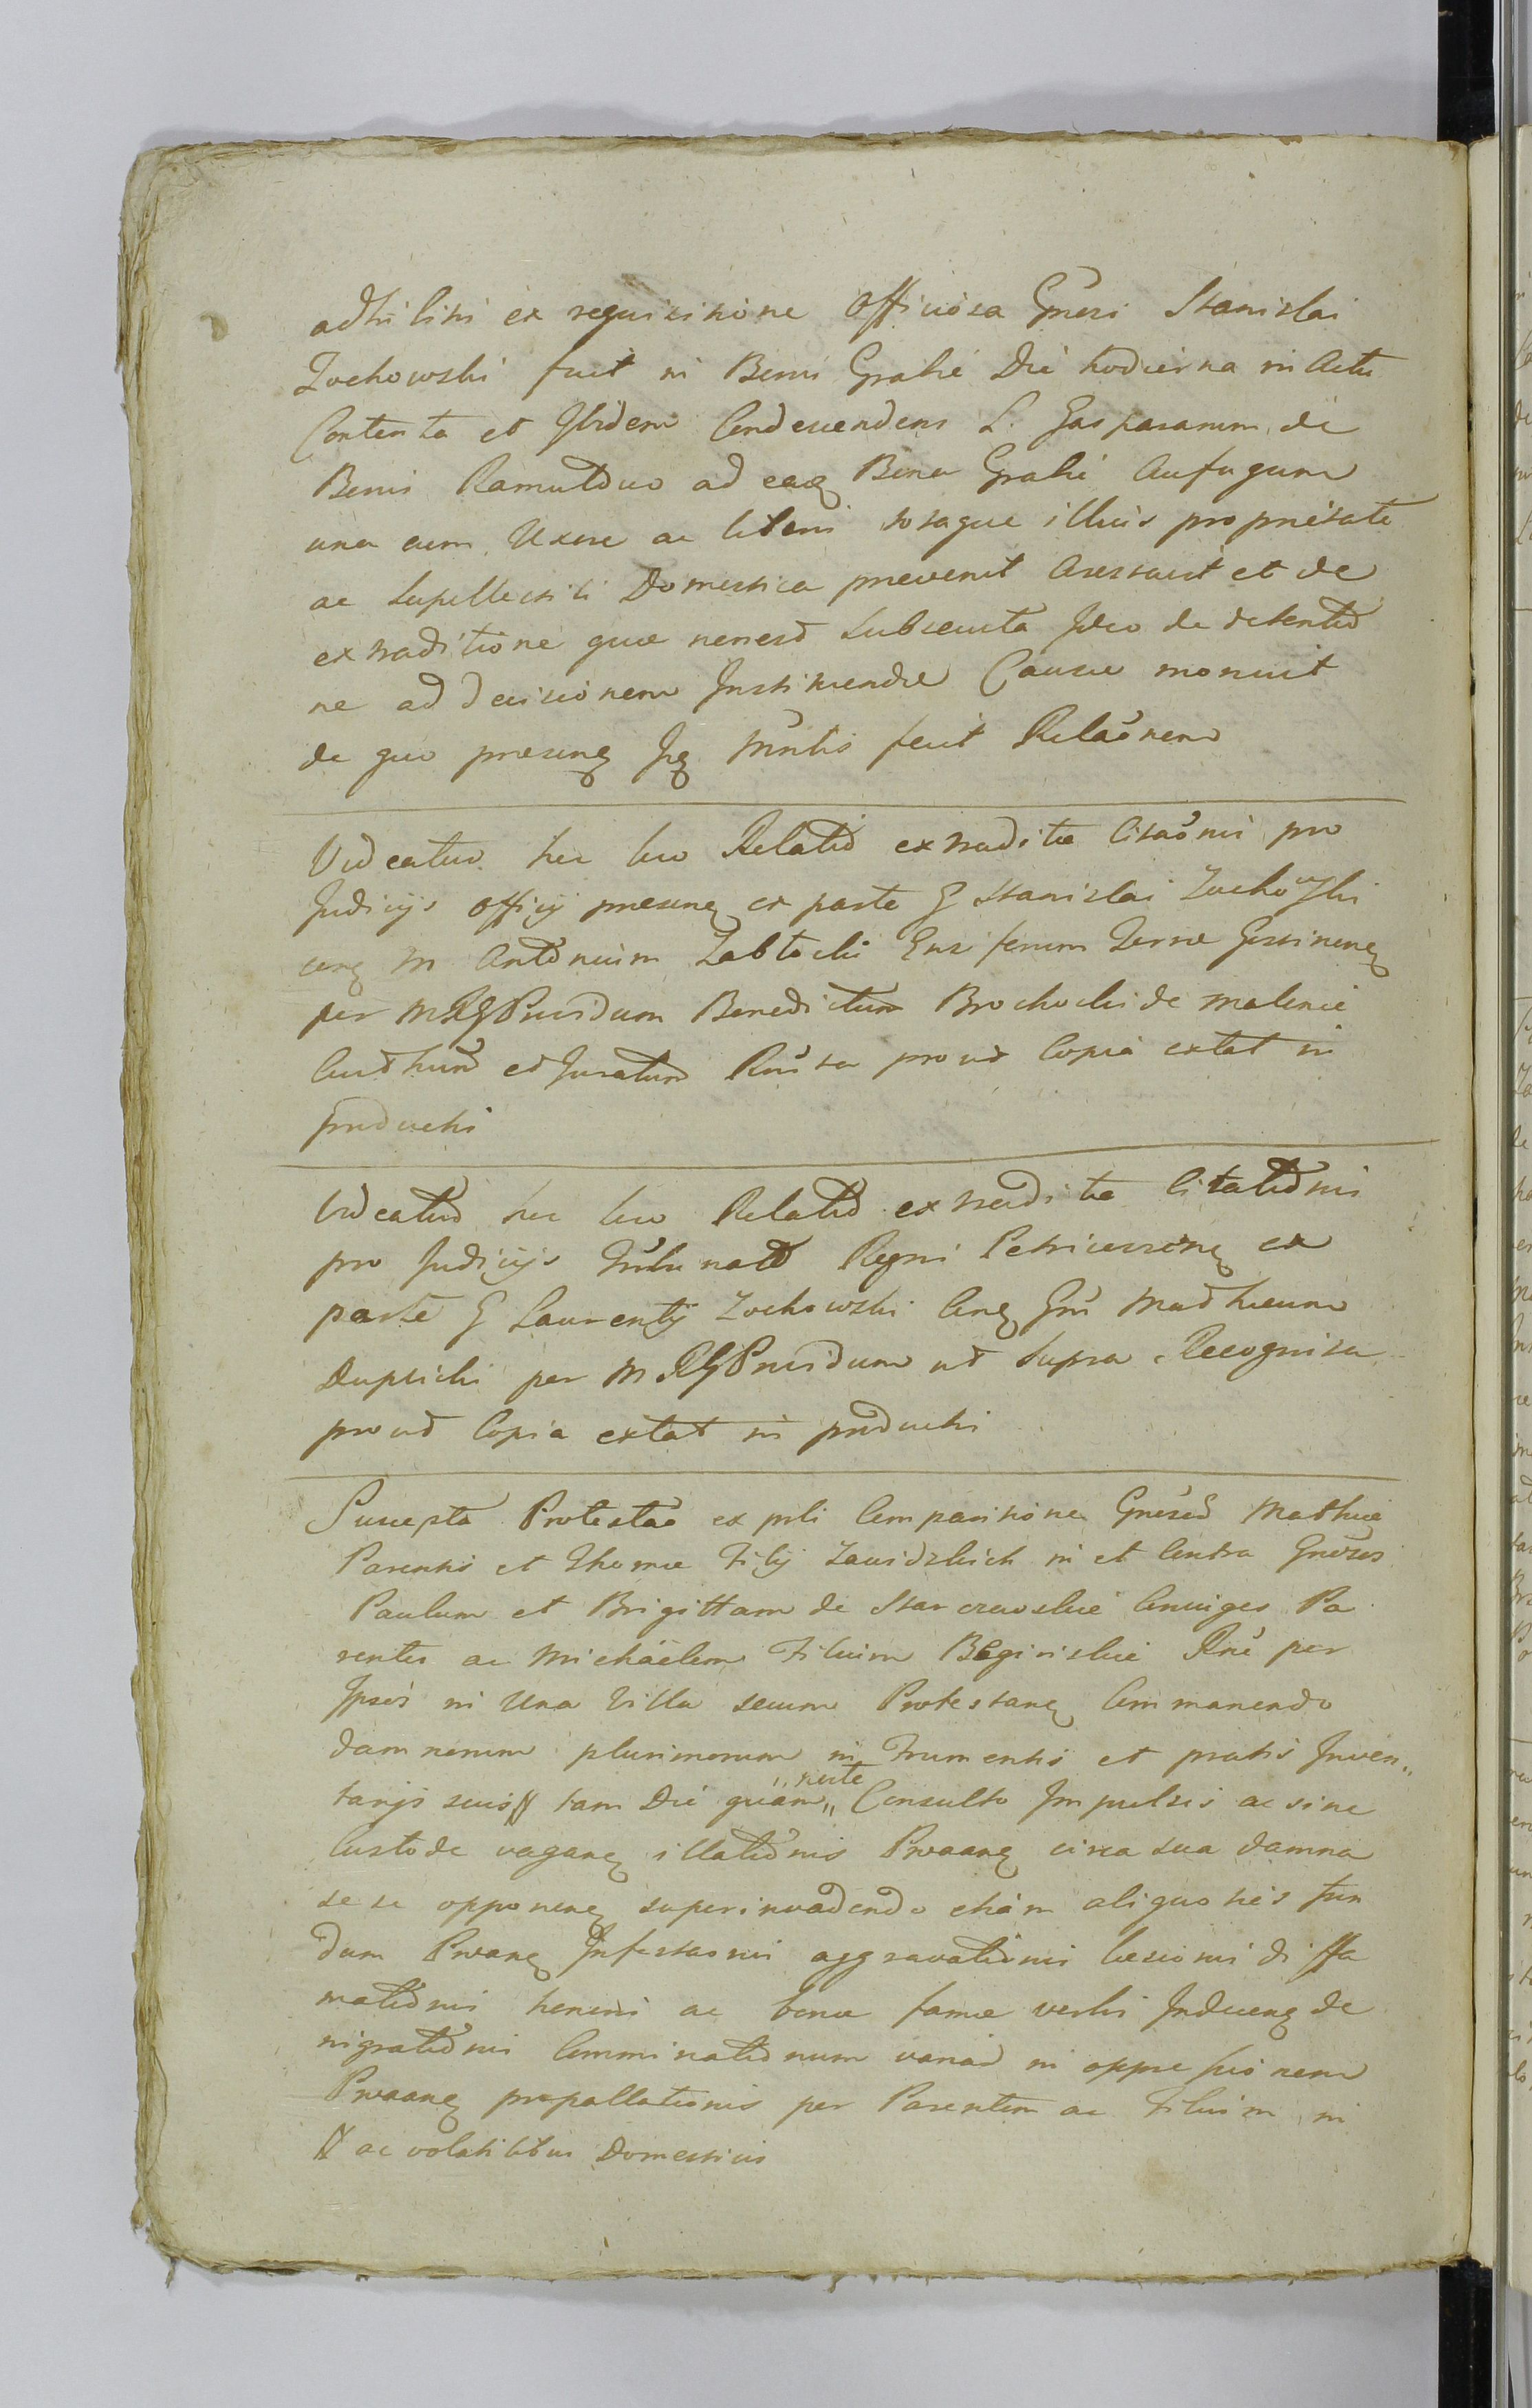 adhibiti ex requisitione officiosa Gnesi Stanislai
Zochowski fuit in Bonis Grabie Die hodierna in Actu
Contenta et Ibidem Condescendens L. Gasparum de
Bonis Ramutduo ad eaq Bona Grabie Aufugum
una cum Uxore ac liberis totaque illius proprietate
ac Supellectili Domestica prevenit Arestavit et de
extraditione quæ non est Subsecuta Ideo de detentio
ne ad Decisionem Instituendæ Causæ monuit
de quo præsenq Iq Mntis fecit Relãonem
Videatur hic loco Relatio extraditæ Citaõnis pro
Judicijs officij præsenq ex parte G Stanislai Zochowski
conq M Antonium Zabłocki Ensiferum Terræ Gostinenq
per MRGPvidum Benedictum Brochocki de Malenie
Authum et Juratum Rñita prout Copia extat in
productis
Videatur hic loco Relatio extraditæ Citationis
pro Judicijs Tribunal Regni Petricovienq ex
parte G Laurentij Zochowski Conq Gñ Mathæum
Duplicki per MRGPvidum ut Supra Recognita
prout Copia extat in productis
Suscepta Protestão ex prli Comparitione Gnesor Mathiæ
Parentis et Thomæ Filij Zawidzkich in et Contra Gnosos
Paulum et Brigittam de Starczewskie Coniuges Pa
rentes ac Michäelem Filium Boginskie Rñe per
Ipsos in Una Villa secum Protestanq Commanendo
damnorum plurimorum in Frumentis et pratis Inven„
tarijs suis # tam Die quam „nocte„ Consulto Impulsis ac sine
Custode vaganq illationis Pvaanq circa sua damna
sese opponenq superinvadendo etiam aliquoties fun
dum Pvanq Infestaonis aggravationis læsionis diffa
mationis honoris ac bonæ famæ verbis Indecenq de
nigrationis Comminationum variar in oppressionem
Pvaanq propallationis per Parentem ac Filium in
# ac volatilibus Domesticis